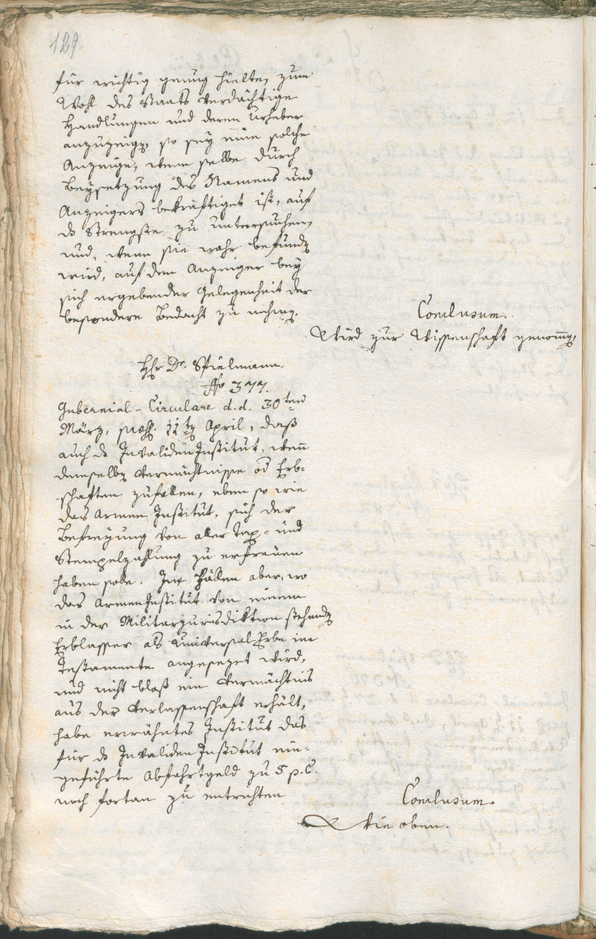 129.
für wichtig genug hielten, zum
Wohl des Staats verdächtige
Handlungen und deren Urheber
anzuzeigen, so sey eine solche
Anzeige, wenn selbe durch
Beysetzung des Namens und
Anzeigers bekräftiget ist, auf
das Strengste zu untersuchen,
und, wenn sie wahr befunden
wird, auf den Anzeiger bey
sich ergebender Gelegenheit der
besondere Bedacht zu nehmen.
Conclusum.
Wird zur Wissenschaft genommen.
Hr Dr. Spielmann.
No 377.
Gubernial-Circulare d.d. 30ten
März, praes. 11ten April, daß
auch das Invaliden Institut, wenn
demselben Vermächtnisse od Erb-
schaften zufallen, eben so wie
das Armen Institut, sich der
Befreyung von aller Tax- und
Stempelzahlung zu erfreuen
haben solle. In Fällen aber, wo
das Armen Institut von einem
in der Militarjurisdiktion stehenden
Erblasser als Universal Erbe im
Testamente angesezet wird,
und nicht bloß ein Vermächtnis
aus der Verlassenschaft erhält,
habe erwähntes Institut das
für das Invaliden Institut ein-
geführte Abfahrtgeld zu 5 p.C.
noch fortan zu entrichten
Conclusum.
Wie oben.